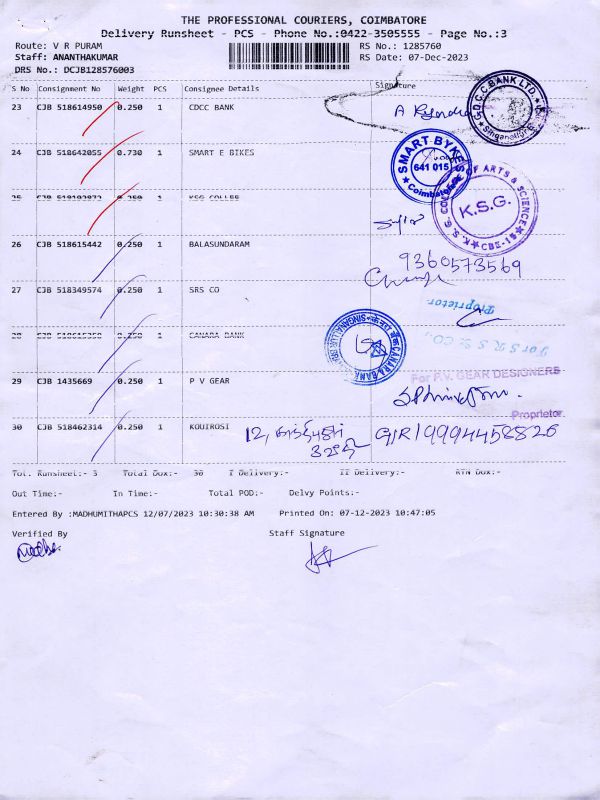 THE PROFESSIONAL COURIERS, COIMBATORE
Delivery Runsheet - PCS - Phone No.:0422-3505555 - Page No.:3
Route: V R PURAM RS No.: 1285760
Staff: ANANTHAKUMAR RS Date: 07-Dec-2023
DRS No.: DCJB128576003
S No Consignment No Weight PCS Consignee Details Signature
23 CJB 518614950 0.250 1 CDCC BANK
24 CJB 518642055 0.730 1 SMART E BIKES
SMART BYKES
641 015
Coimbatore
25 0.250 1 KSG COLLEE
K.S.G. COLLEGE OF ARTS & SCIENCE
K.S.G.
CBE-15
26 CJB 518615442 0.250 1 BALASUNDARAM
9360573569
27 CJB 518349574 0.250 1 SRS CO
Proprietor
For S R S & CO.,
28 0.250 1 CANARA BANK
CANARA BANK
29 CJB 1435669 0.250 1 P V GEAR
For P.V. GEAR DESIGNERS
Proprietor.
30 CJB 518462314 0.250 1 KOUIROSI
12, G/R/9994458826
Tot. Runsheet:- 3 Total Dox:- 30 I Delivery:- II Delivery:- RTN Dox:-
Out Time:- In Time:- Total POD:- Delvy Points:-
Entered By :MADHUMITHAPCS 12/07/2023 10:30:38 AM Printed On: 07-12-2023 10:47:05
Verified By Staff Signature